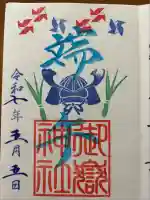 端午
令和七年五月五日
御嶽
神社